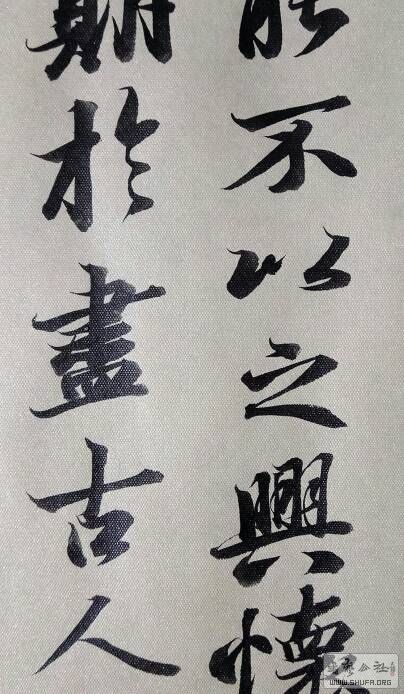 能不以之興懷
期於盡古人
WWW.SHUFA.ORG